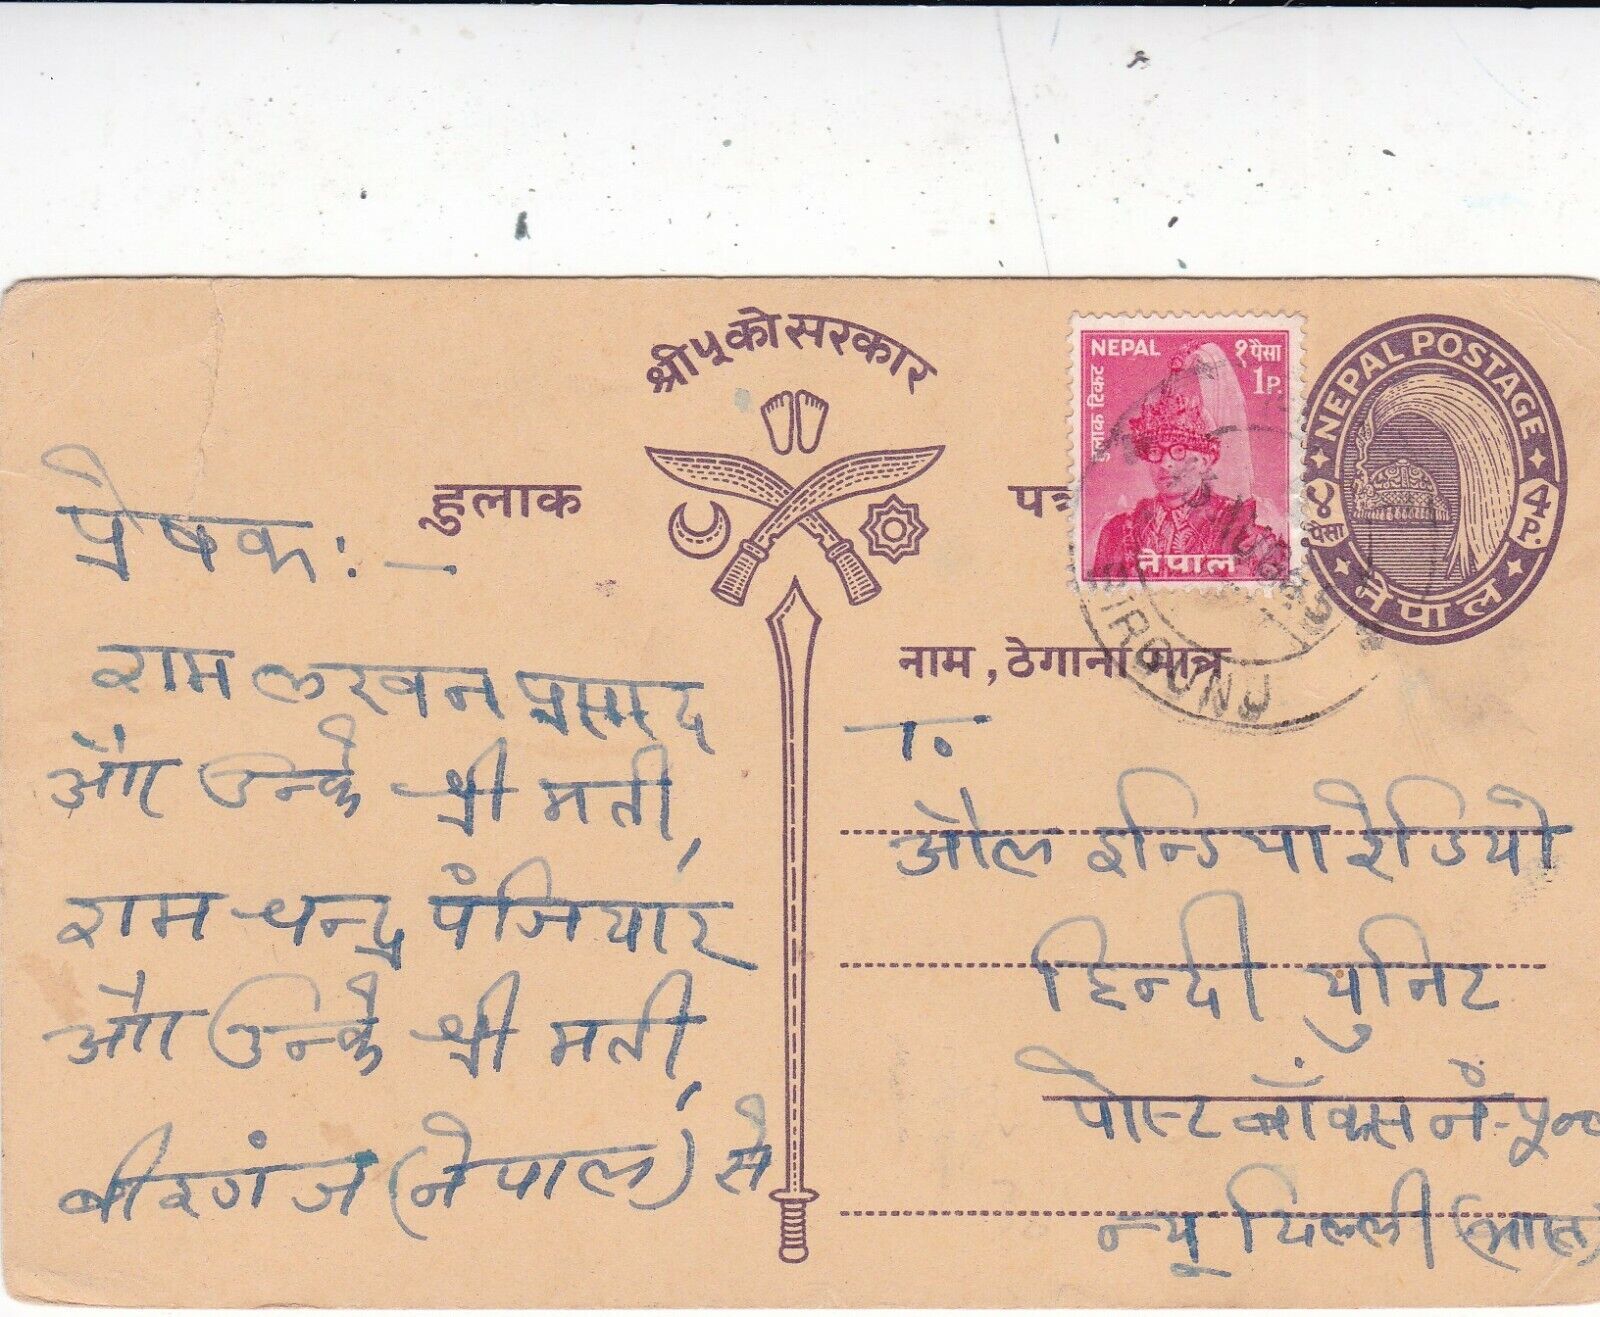 श्री ५ को सरकार
हुलाक
पत्र
NEPAL
१ पैसा
1P.
हुलाक टिकट
नेपाल
NEPAL POSTAGE
४ पैसा
4 P.
नेपाल
BIRGUNJ
नाम, ठेगाना मात्र
प्रेषक :-
राम लखन प्रसाद
और उन्के श्री मती,
राम चन्द्र पंजियार
और उन्के श्री मती,
बीरगंज (नेपाल) से
To
औल इन्डिया रेडियो
हिन्दी युनिट
पोस्ट बॉक्स नं-
न्यू दिल्ली (भारत)